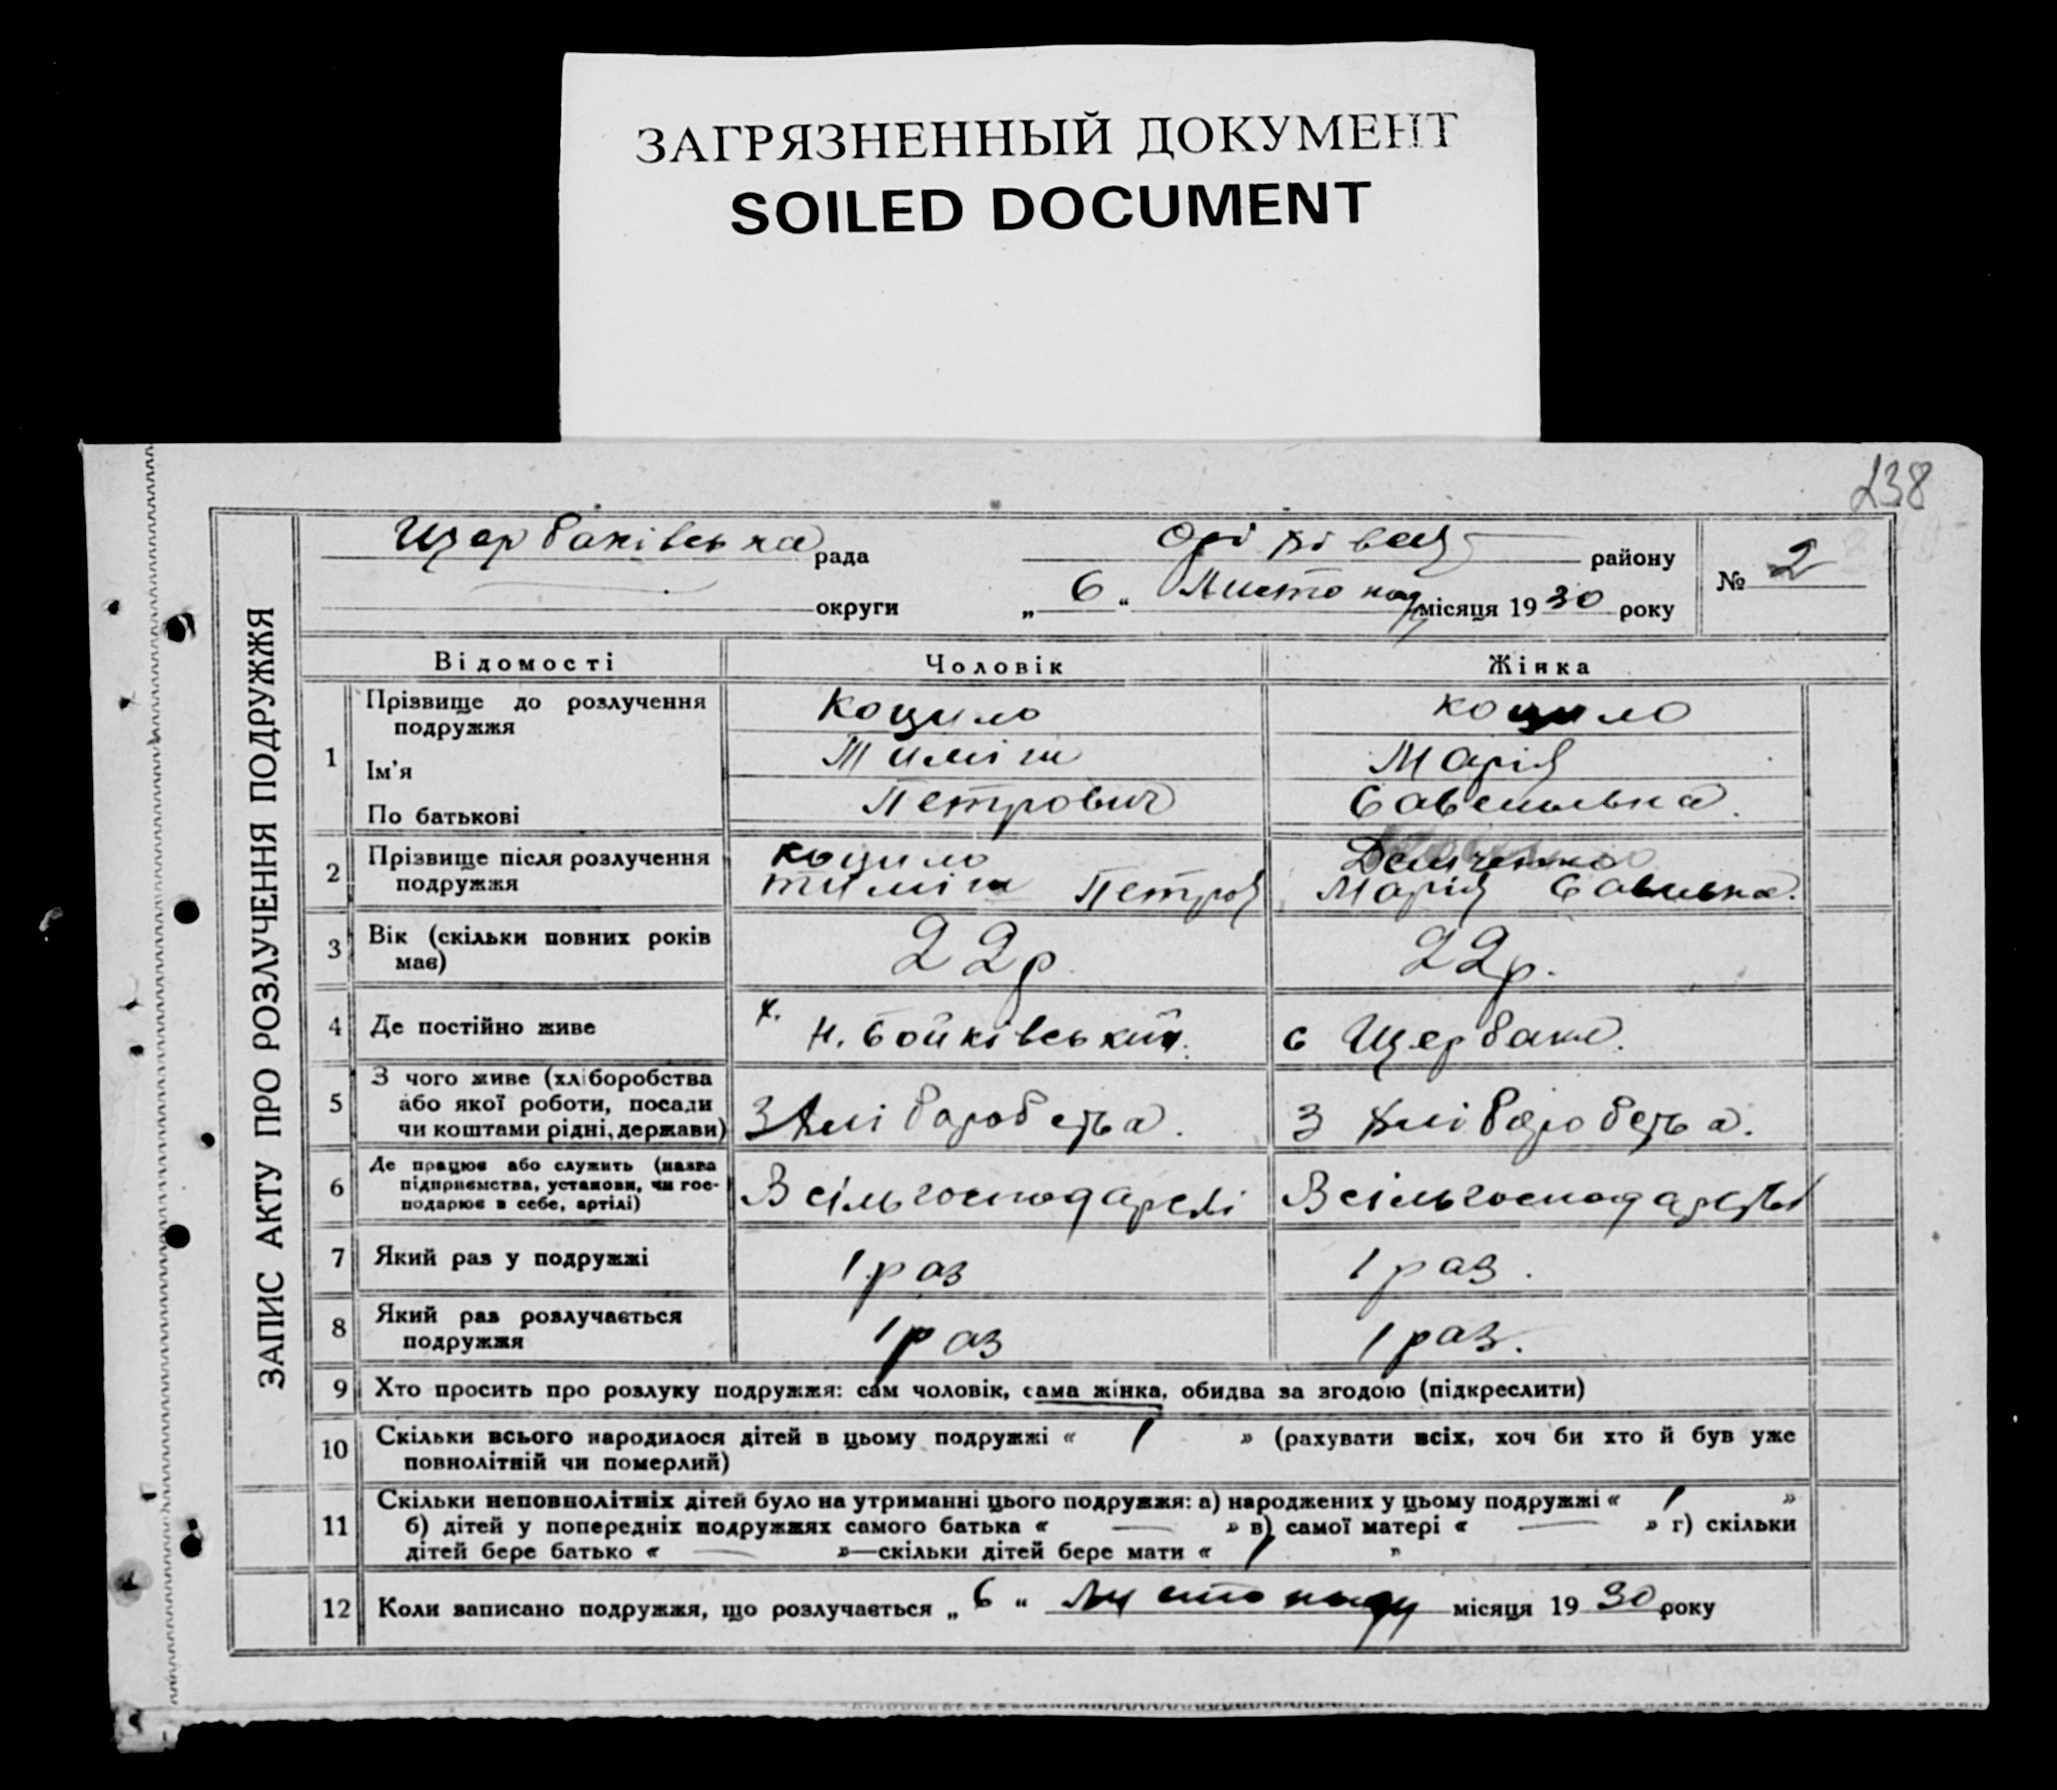 ЗАГРЯЗНЕННЫЙ ДОКУМЕНТ
SOILED DOCUMENT
238
ЗАПИС АКТУ ПРО РОЗЛУЧЕННЯ ПОДРУЖЖЯ
Щербаківська рада районy
№ 2
округи „ 6 “ Листопаду місяця 1930 року
Відомості Чоловік Жінка
1 Прізвище до розлучення подружжя Коцило Коцило
Ім'я Тиміш Марія
По батькові Петрович Савельивна
2 Прізвище після розлучення подружжя Коцило Демченко
Тиміш Петров Марія
3 Вік (скільки повних років має) 22р 22р.
4 Де постійно живе х. Н. Бойківський. с Щербаки.
5 З чого живе (хліборобства або якої роботи, посади чи коштами рідні, держави) З хліборобства. З хліборобства.
6 Де працює або служить (назва підприємства, установи, чи господарює в себе, артілі) В сільгосподарстві
7 Який раз у подружжі 1 раз 1 раз.
8 Який раз розлучається подружжя 1 раз 1 раз.
9 Хто просить про розлуку подружжя: сам чоловік, сама жінка, обидва за згодою (підкреслити)
10 Скільки всього народилося дітей в цьому подружжі « 1 » (рахувати всіх, хоч би хто й був уже
повнолітній чи померлий)
11 Скільки неповнолітніх дітей було на утриманні цього подружжя: а) народжених у цьому подружжі « 1 »
б) дітей у попередніх подружжях самого батька « — » в) самої матері « — » г) скільки
дітей бере батько « — »—скільки дітей бере мати « 1 »
12 Коли записано подружжя, що розлучається „ 6 “ Листопаду місяця 1930 року